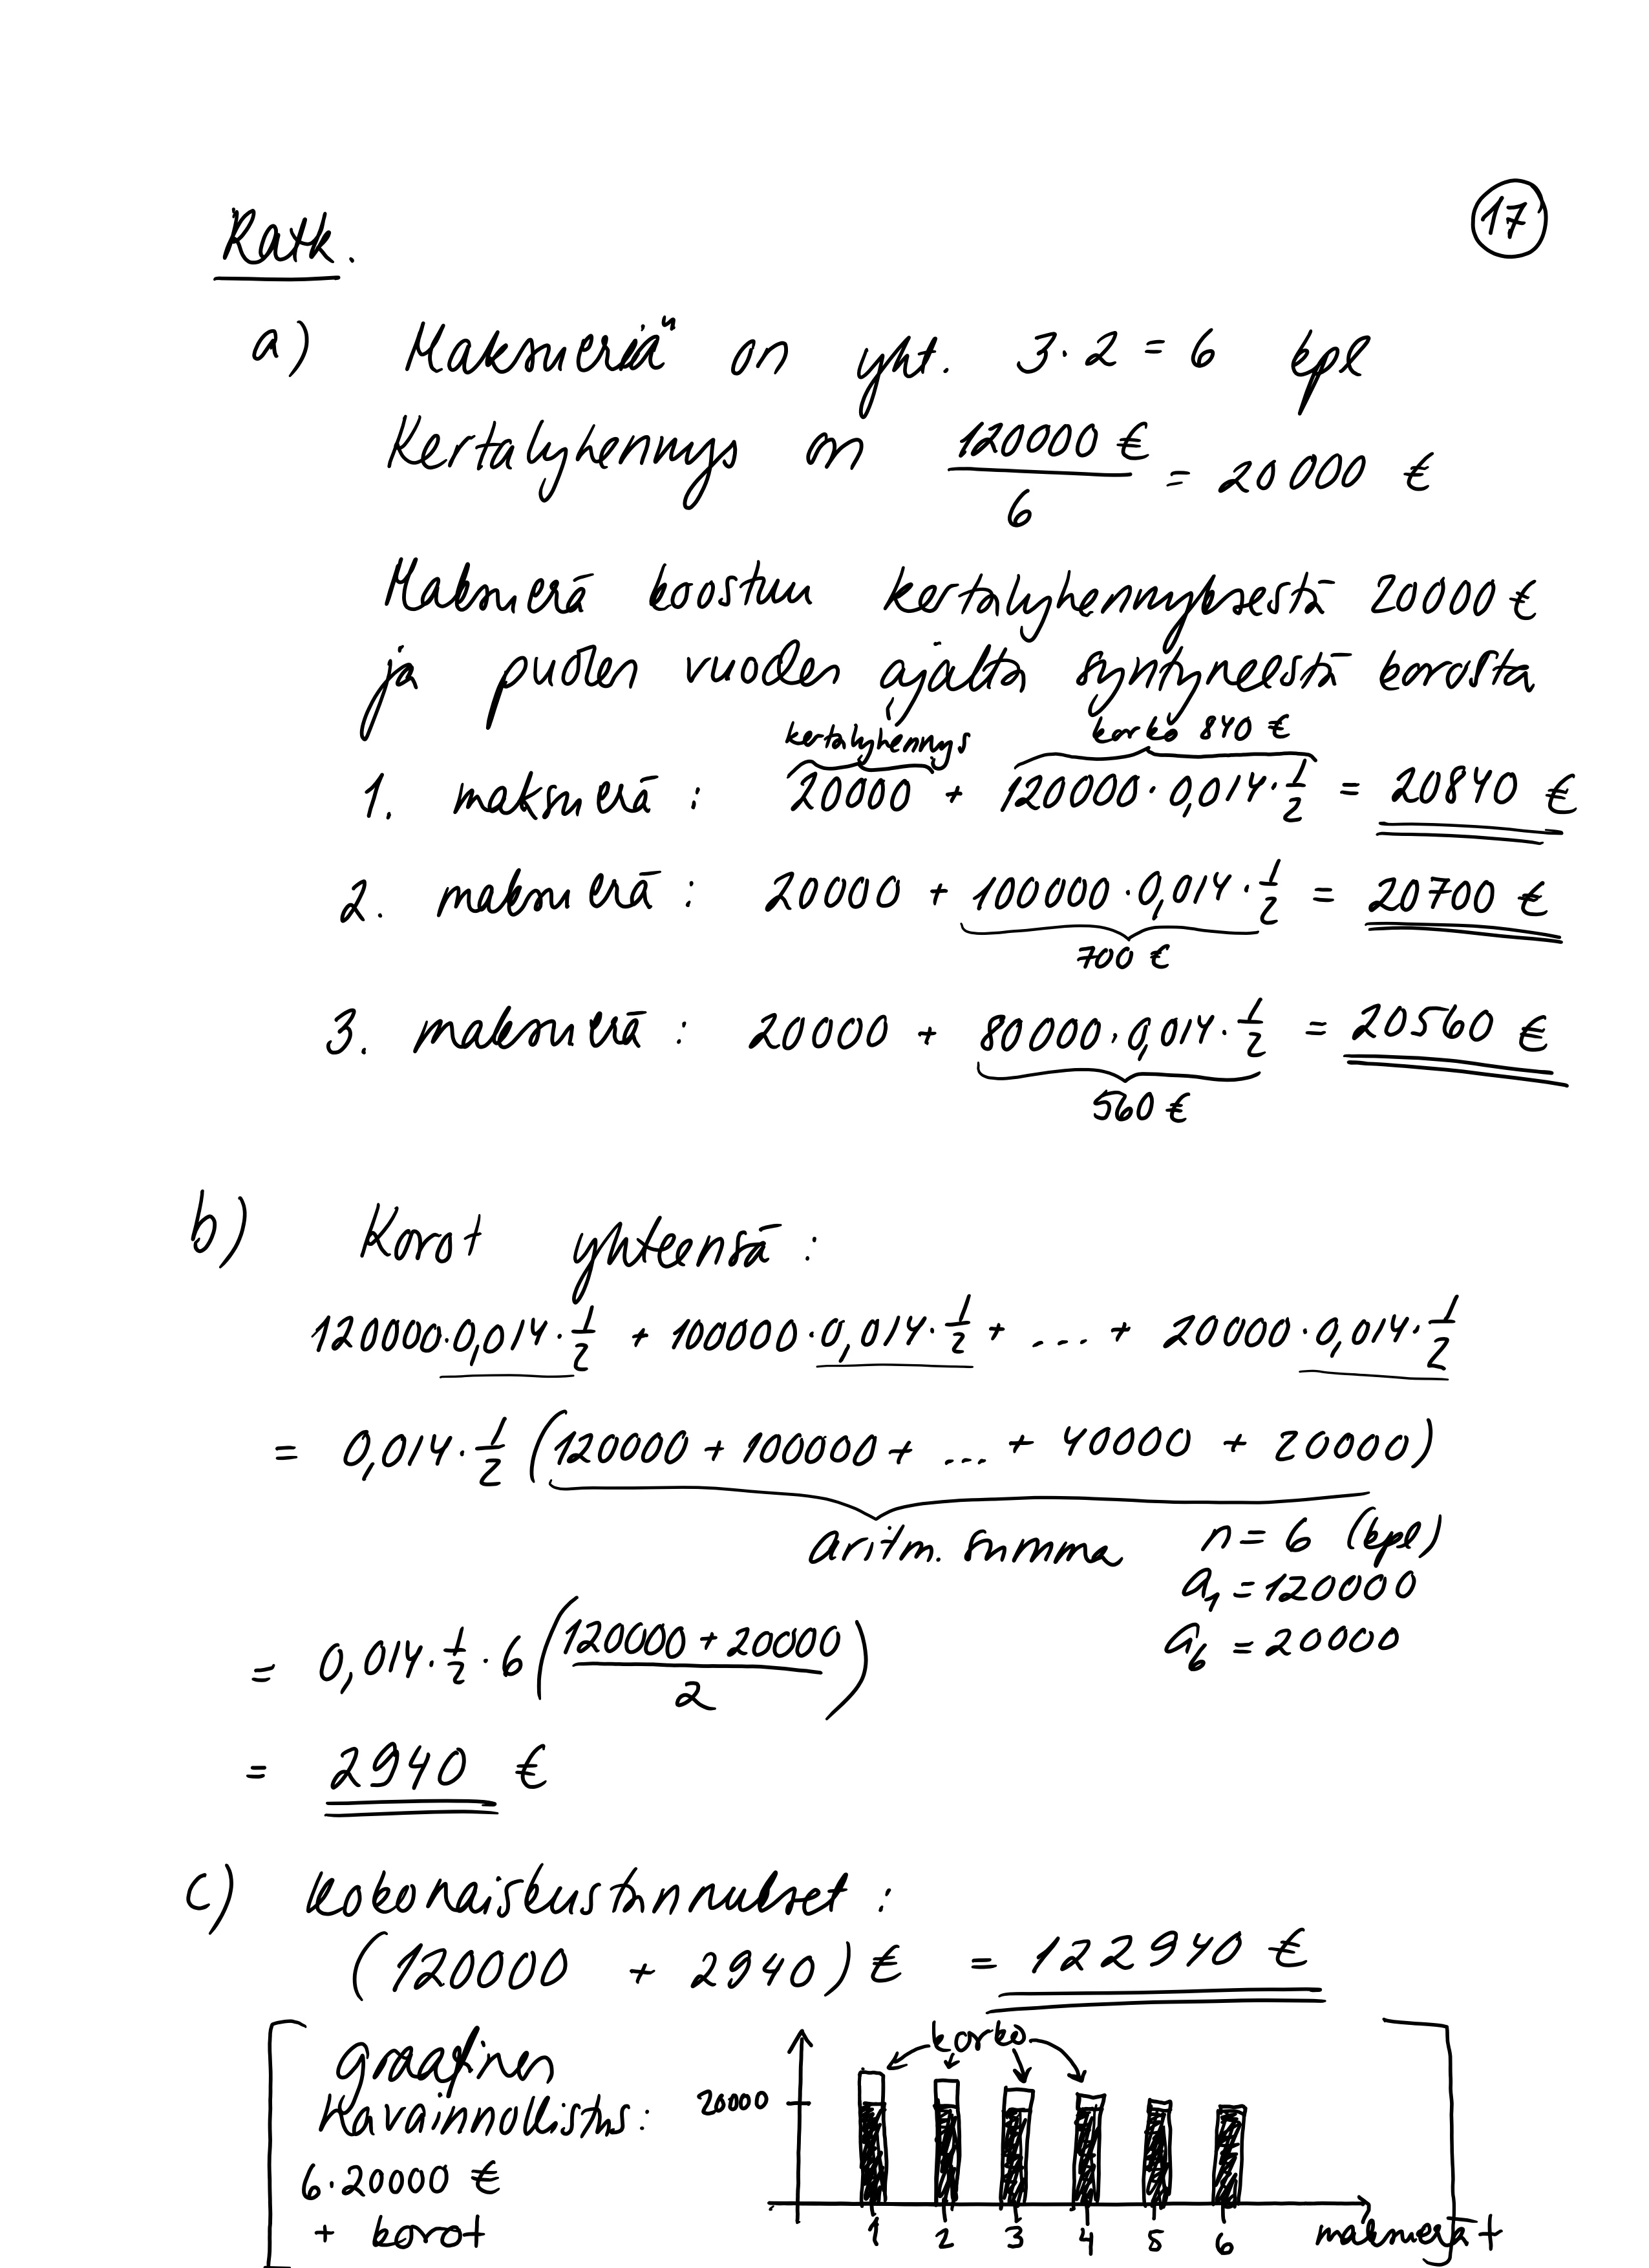 17
Ratk.
a) Maksueriä on yht. 3·2 = 6 kpl
Kertalyhennys on 120000 € / 6 = 20 000 €
Maksuerä koostuu kertalyhennyksestä 20000 €
ja puolen vuoden ajalta syntyneestä korosta
kertalyhennys korko 840 €
1. maksuerä : 20000 + 120000 · 0,014 · 1/2 = 20840 €
2. maksuerä : 20000 + 100000 · 0,014 · 1/2 = 20700 €
700 €
3. maksuerä : 20000 + 80000 · 0,014 · 1/2 = 20560 €
560 €
b) Korot yhteensä :
120000·0,014·1/2 + 100000·0,014·1/2 + ... + 20000·0,014·1/2
= 0,014·1/2 (120000 + 100000 + ... + 40000 + 20000)
aritm. summa n = 6 (kpl)
a₁ = 120000
a₆ = 20000
= 0,014·1/2·6 ((120000 + 20000)/2)
= 2940 €
c) Kokonaiskustannukset :
(120000 + 2940) € = 122940 €
graafinen
havainnollistus:
6·20000 €
+ korot
korko
20000
1 2 3 4 5 6 maksuerä t